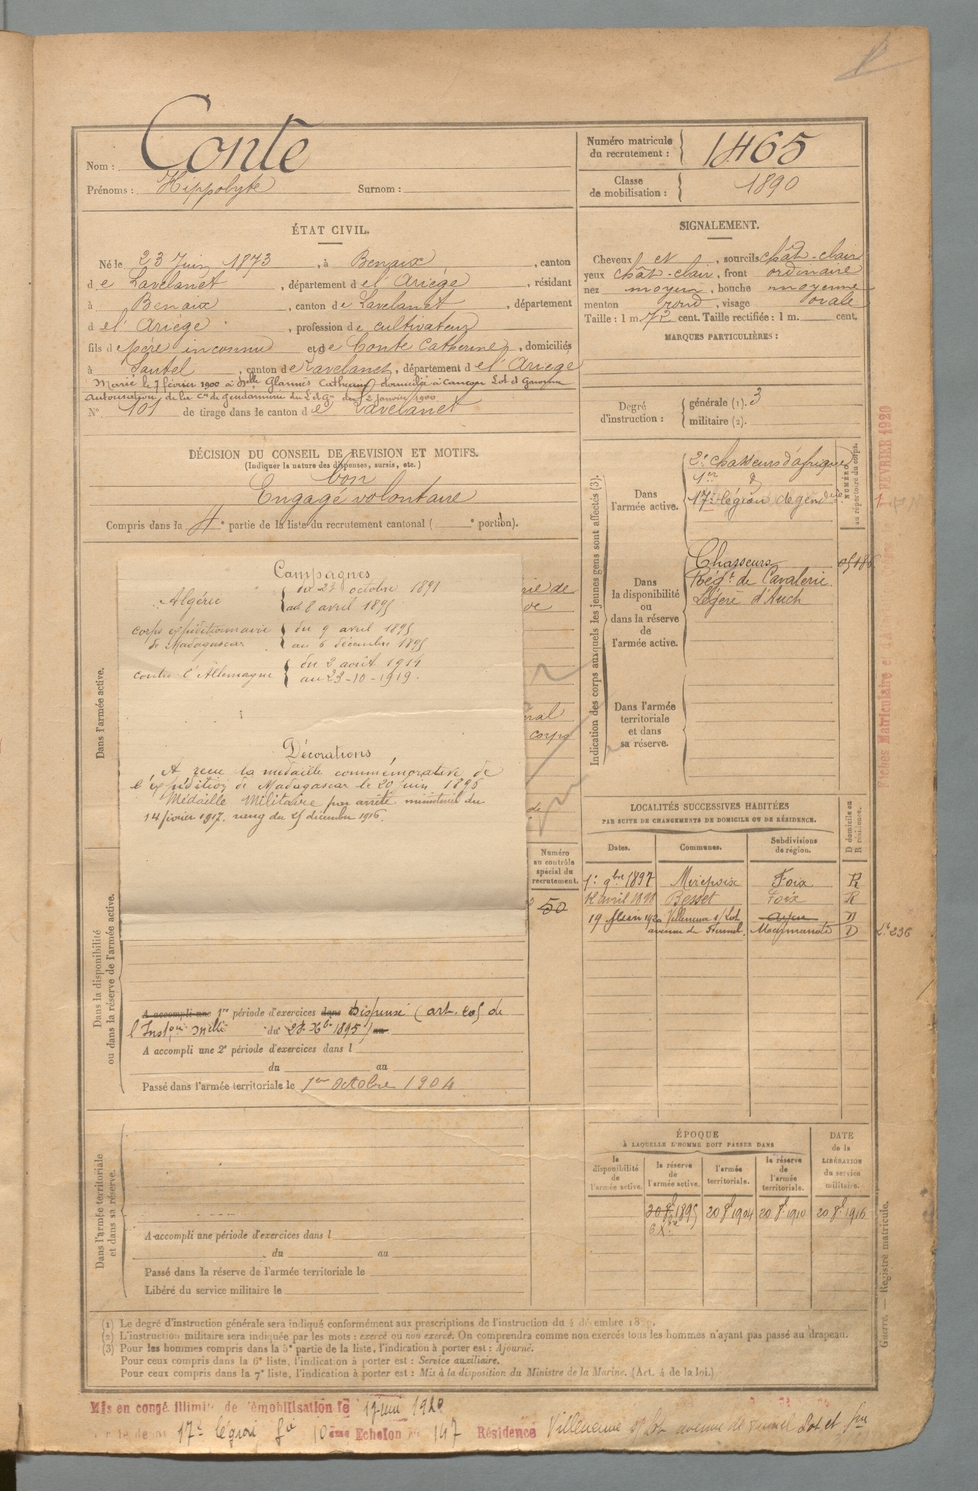 Nom : Conte
Prénoms : Hippolyte Surnom :
Numéro matricule du recrutement : 1465
Classe de mobilisation : 1890
ÉTAT CIVIL.
Né le 23 Juin 1873, à Benaix, canton
de Lavelanet, département de l'Ariège, résidant
à Benaix, canton de Lavelanet, département
de l'Ariège, profession de cultivateur
fils de père inconnu et de Conte Catherine, domiciliés
à Sautel, canton de Lavelanet, département de l'Ariège
Marié le 7 février 1900 à Mlle Catherine domiciliée à Cancon Lot et Garonne
autorisation de la Cie de gendarmerie du L et Gne du 12 janvier 1900
N° 101 de tirage dans le canton de Lavelanet
SIGNALEMENT.
Cheveux et, sourcils chât-clair
yeux chât-clair, front ordinaire
nez moyen, bouche moyenne
menton rond, visage ovale
Taille : 1 m. 72 cent. Taille rectifiée : 1 m. cent.
MARQUES PARTICULIÈRES :
Degré d'instruction : générale (1). 3
militaire (2).
DÉCISION DU CONSEIL DE REVISION ET MOTIFS.
(Indiquer la nature des dispenses, sursis, etc.)
bon
Engagé volontaire
Compris dans la 4e partie de la liste du recrutement cantonal ( e portion).
Indication des corps auxquels les jeunes gens sont affectés (3).
Dans l'armée active.
2e chasseurs d'afrique
1er
17e légion de gend
NUMÉRO au répertoire du corps.
Dans la disponibilité ou dans la réserve de l'armée active.
Chasseurs
Régt de Cavalerie
Légère d'Auch
Dans l'armée territoriale et dans sa réserve.
Dans l'armée active.
Campagnes
Algérie du 23 octobre 1891
au 8 avril 1895
corps expéditionnaire de Madagascar du 9 avril 1895
au 6 décembre 1895
contre l'Allemagne du 2 août 1914
au 23-10-1919.
Décorations
A reçu la médaille commémorative de
l'expédition de Madagascar le 20 juin 1896
Médaille Militaire par arrêté ministériel du
14 février 1917. rang du 25 décembre 1916.
rie de
corps
de
Numéro au contrôle spécial du recrutement.
50
LOCALITÉS SUCCESSIVES HABITÉES
PAR SUITE DE CHANGEMENTS DE DOMICILE OU DE RÉSIDENCE.
Dates. Communes. Subdivisions de région. D domicile ou R résidence.
1er 9bre 1897 Mirepoix Foix R
avril 1898 Besset Foix R
19 Villeneuve s/ Lot Agen D
avenue de Fumel. Marmande D
Dans la disponibilité ou dans la réserve de l'armée active.
A accompli une 1re période d'exercices dans Dispensé (art. 205 de
l'Inston Mlle du 28 Xbre 1895) au
A accompli une 2e période d'exercices dans l
du au
Passé dans l'armée territoriale le 1er Octobre 1904
Dans l'armée territoriale et dans sa réserve.
A accompli une période d'exercices dans l
du au
Passé dans la réserve de l'armée territoriale le
Libéré du service militaire le
ÉPOQUE
À LAQUELLE L'HOMME DOIT PASSER DANS
la disponibilité de l'armée active. la réserve de l'armée active. l'armée territoriale. la réserve de l'armée territoriale.
DATE de la LIBÉRATION du service militaire.
1895 20 8bre 1904 20 8bre 1910 20 8bre 1916
(1) Le degré d'instruction générale sera indiqué conformément aux prescriptions de l'instruction du
(2) L'instruction militaire sera indiquée par les mots : exercé ou non exercé. On comprendra comme non exercés tous les hommes n'ayant pas passé au drapeau.
(3) Pour les hommes compris dans la 5e partie de la liste, l'indication à porter est : Ajourné.
Pour ceux compris dans la 6e liste, l'indication à porter est : Service auxiliaire.
Pour ceux compris dans la 7e liste, l'indication à porter est : Mis à la disposition du Ministre de la Marine. (Art. 4 de la loi.)
Guerre. — Registre matricule.
FÉVRIER 1920
Mis en congé illimité de démobilisation le 1920
17e légion 10ème Echelon 147 Résidence Villeneuve s/ Lot avenue de Fumel Lot et